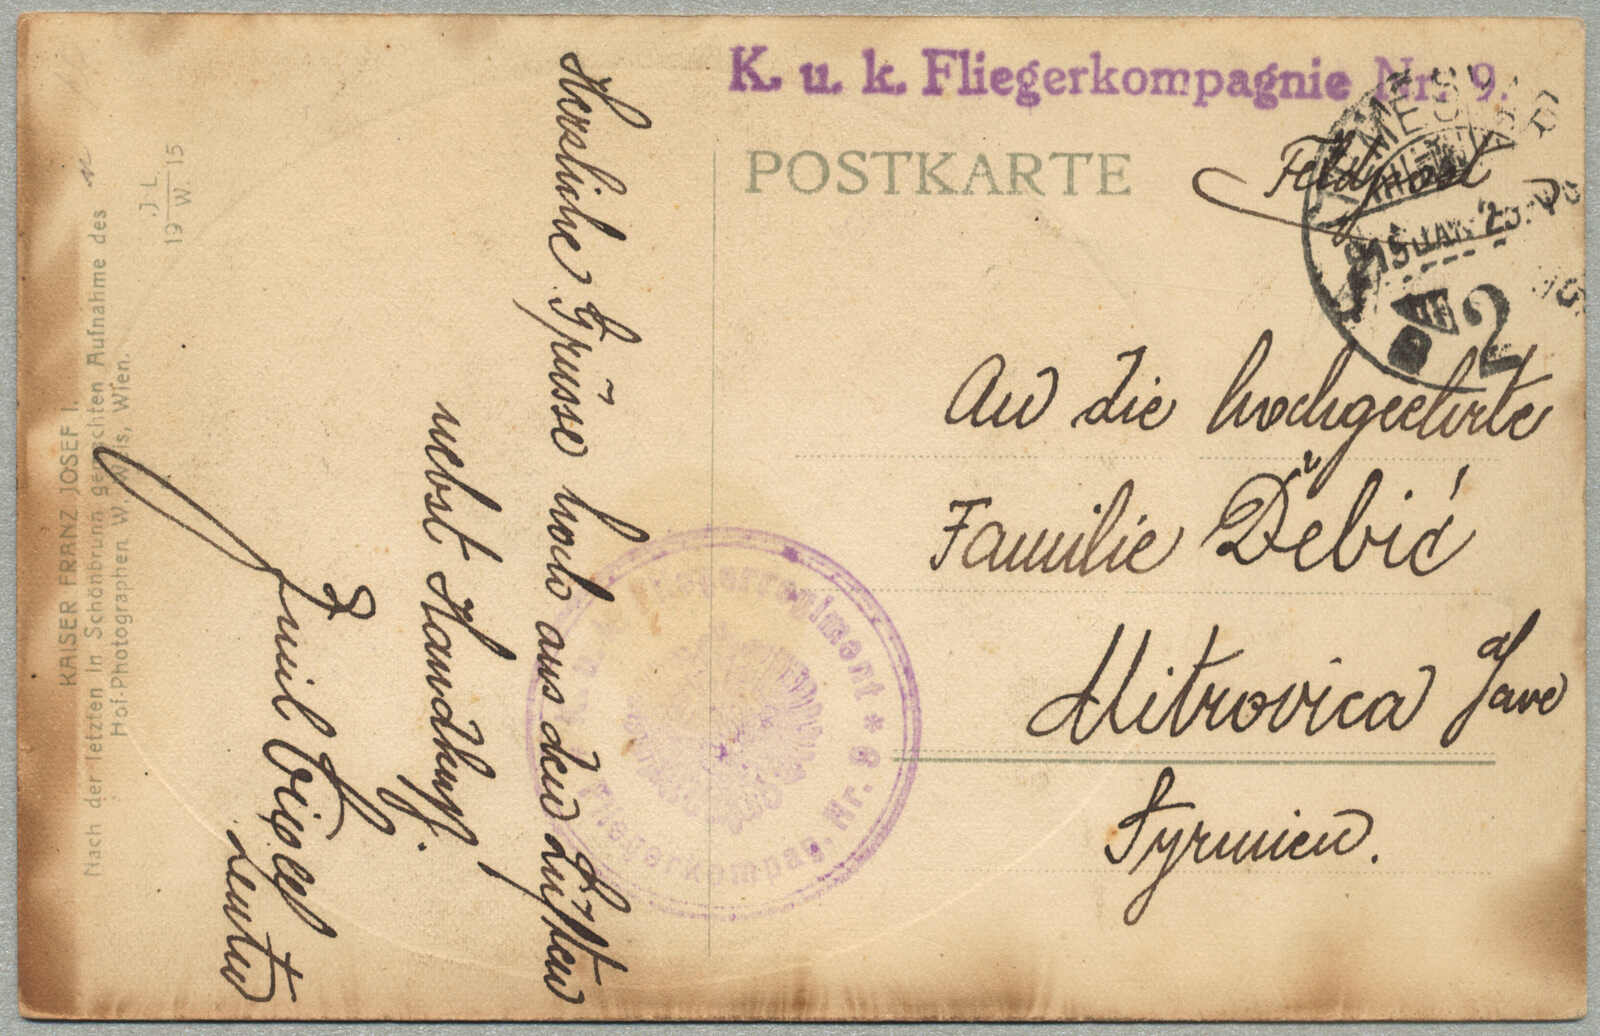 K. u. k. Fliegerkompagnie Nr. 9.
POSTKARTE
Feldpost
An die hochgeehrte
Familie Debić
Mitrovica a/ Save
Syrmien.
Herzliche Grüsse hoch aus den Lüften
nebst Handkuss.
Emil
Fliegerkompag. Nr. 9 *
2
KAISER FRANZ JOSEF I.
Nach der letzten in Schönbrunn gemachten Aufnahme des
Hof-Photographen W. Weis, Wien.
J. L.
W.
19 15